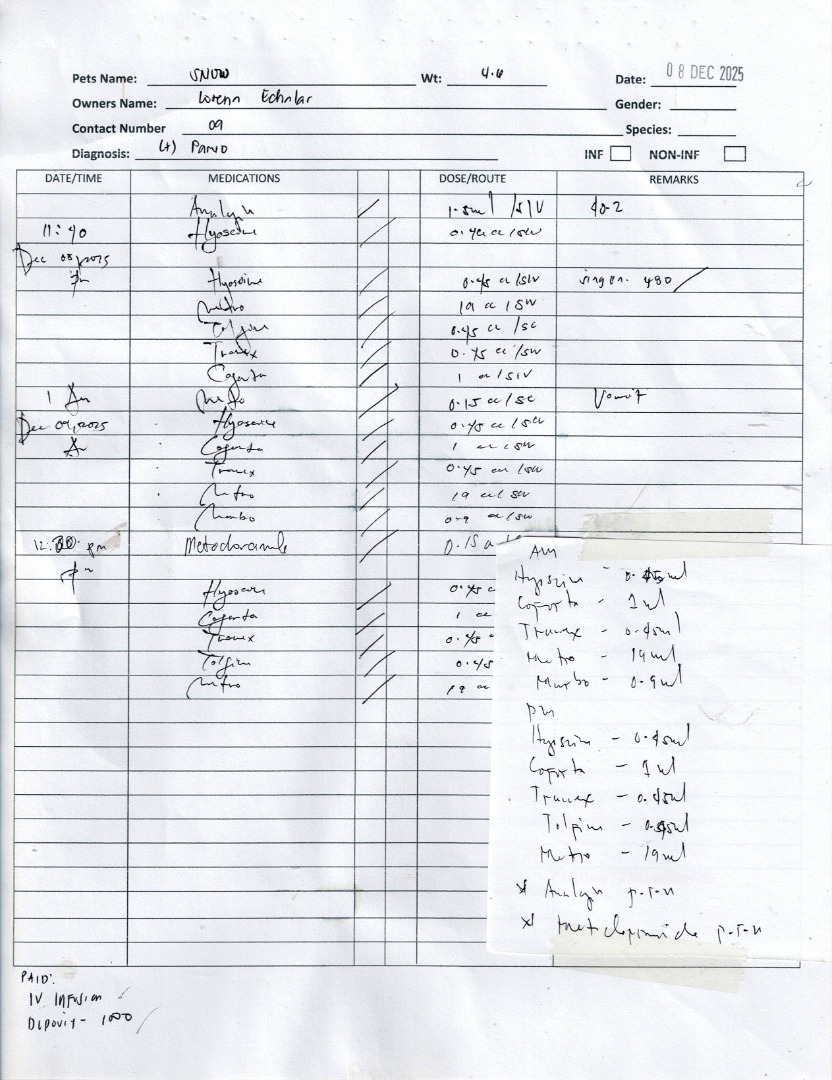 Pets Name: SNOW Wt: 4.6 Date: 08 DEC 2025
Owners Name: Lorenn Gender:
Contact Number 09 Species:
Diagnosis: (+) PARVO INF NON-INF
DATE/TIME MEDICATIONS DOSE/ROUTE REMARKS
Analgin 1.5ml /SIV 40-2
11:40 Hyoscine 0.45 cc /SIV
Dec 08, 2025
pm Hyoscine 0.45 cc /SIV 480
Metro 19 cc /SIV
Tolfine 0.45 cc /SC
Tranex 0.45 cc /SIV
1 cc /SIV
1 Am 0.15 cc /SC Vomit
Dec 09, 2025 Hyoscine 0.45 cc /SIV
Am 1 cc /SIV
Tranex 0.45 cc /SIV
Metro 19 cc /SIV
Marbo 0.9 cc /SIV
12:30 pm 0.15
pm
Hyoscine 0.45 c
1 cc
Tranex 0.45
Tolfine 0.45
Metro 19 cc
AM
Hyoscine - 0.45ml
- 1ml
Tranex - 0.45ml
Metro - 19ml
Marbo - 0.9ml
pm
Hyoscine - 0.45ml
- 1ml
Tranex - 0.45ml
Tolfine - 0.45ml
Metro - 19ml
* Analgin p.r.n
* p.r.n
PAID:
IV INFUSION
DEPOSIT - 1000